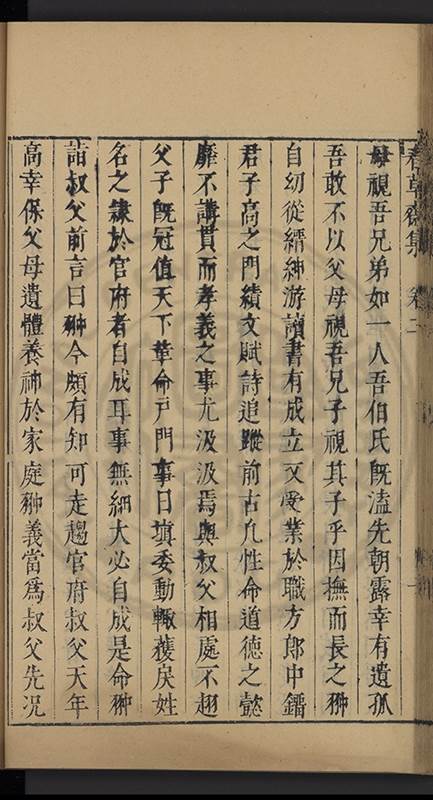 春草齋集 卷二
母視吾兄弟如一人吾伯氏旣溘先朝露幸有遺孤
吾敢不以父母視吾兄子視其子乎因撫而長之翀
自幼從縉紳游讀書有成立又受業於職方郎中鎦
君子高之門績文賦詩追蹤前古凡性命道德之懿
靡不講貫而孝義之事尤汲汲焉與叔父相處不翅
父子旣冠值天下革命戶門事日填委動輒獲戾姓
名之隷於官府者自成耳事無細大必自成是命翀
詣叔父前言曰翀今頗有知可走趨官府叔父天年
高幸保父母遺體養神於家庭翀義當爲叔父先况